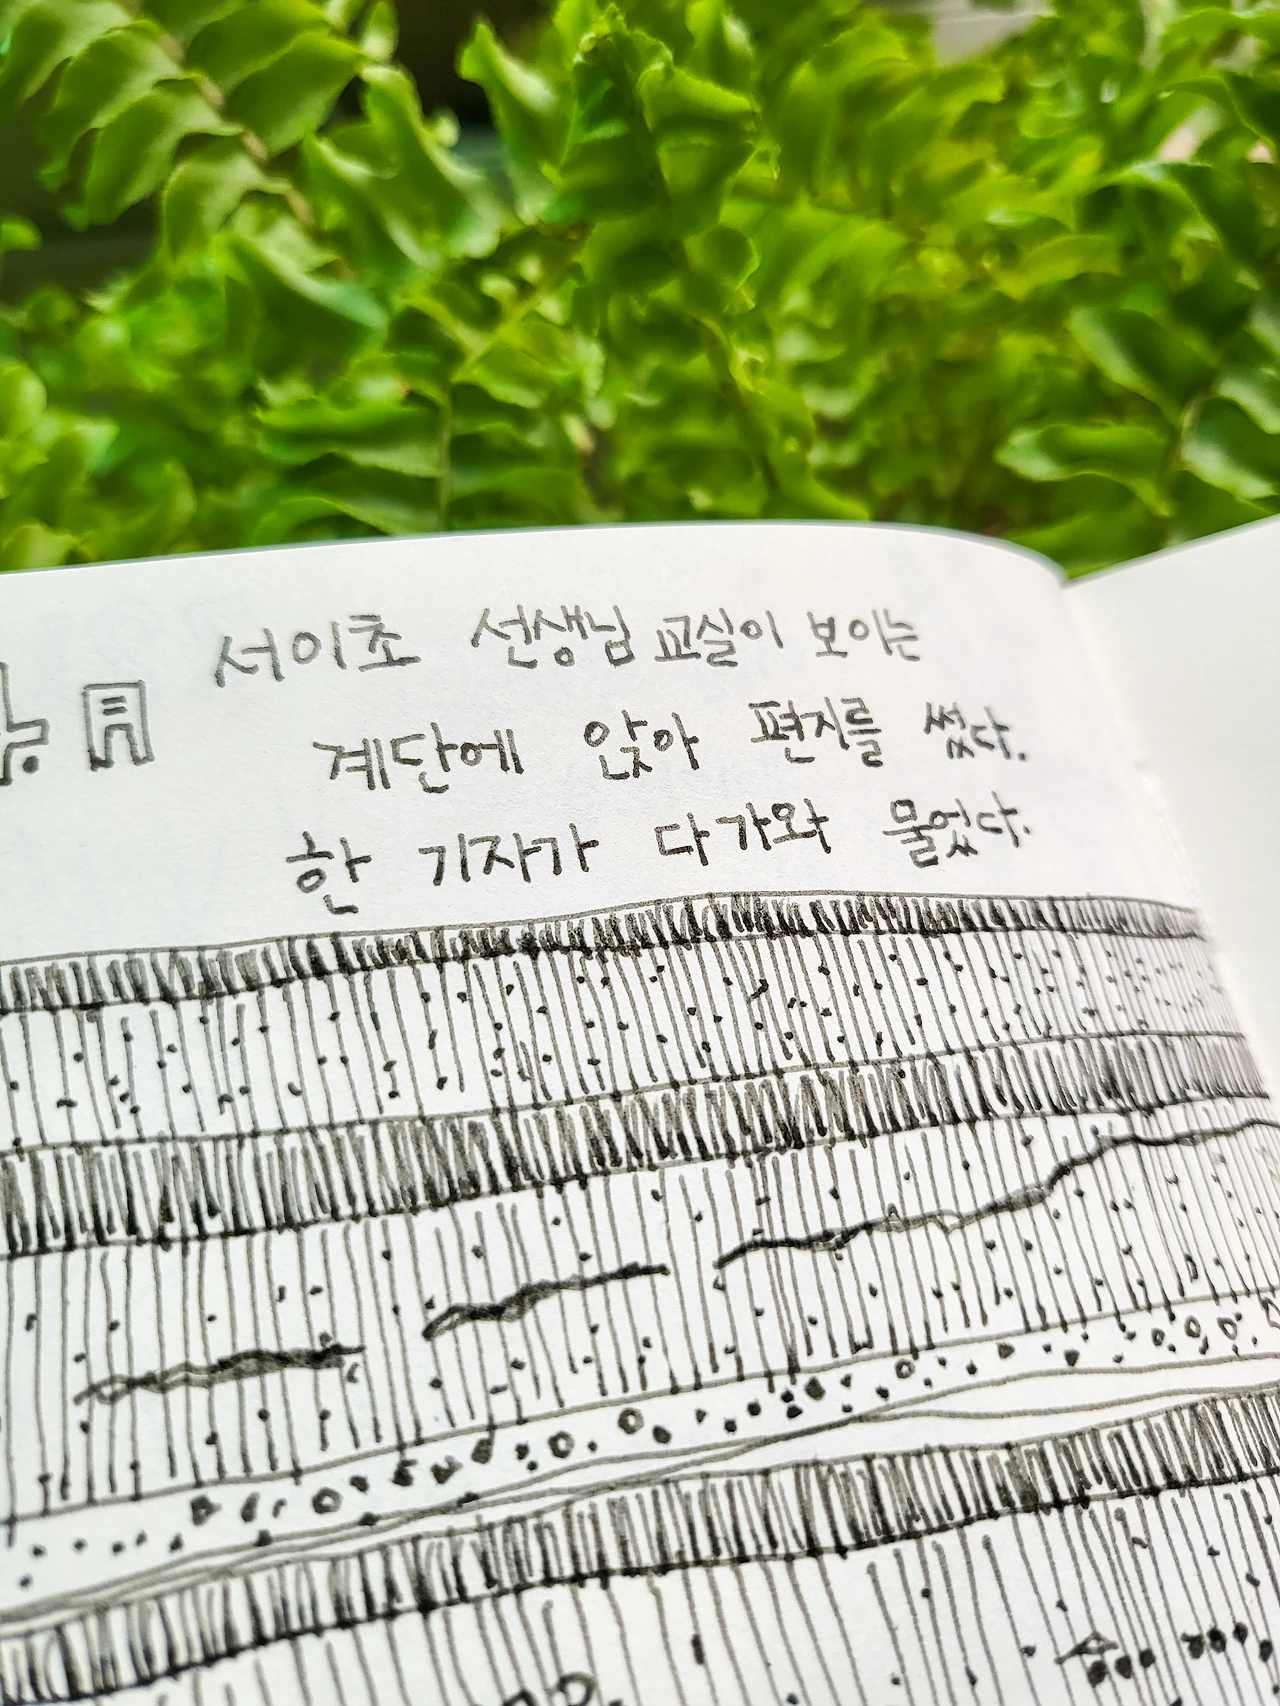 서이초 선생님 교실이 보이는
계단에 앉아 편지를 썼다.
한 기자가 다가와 물었다.